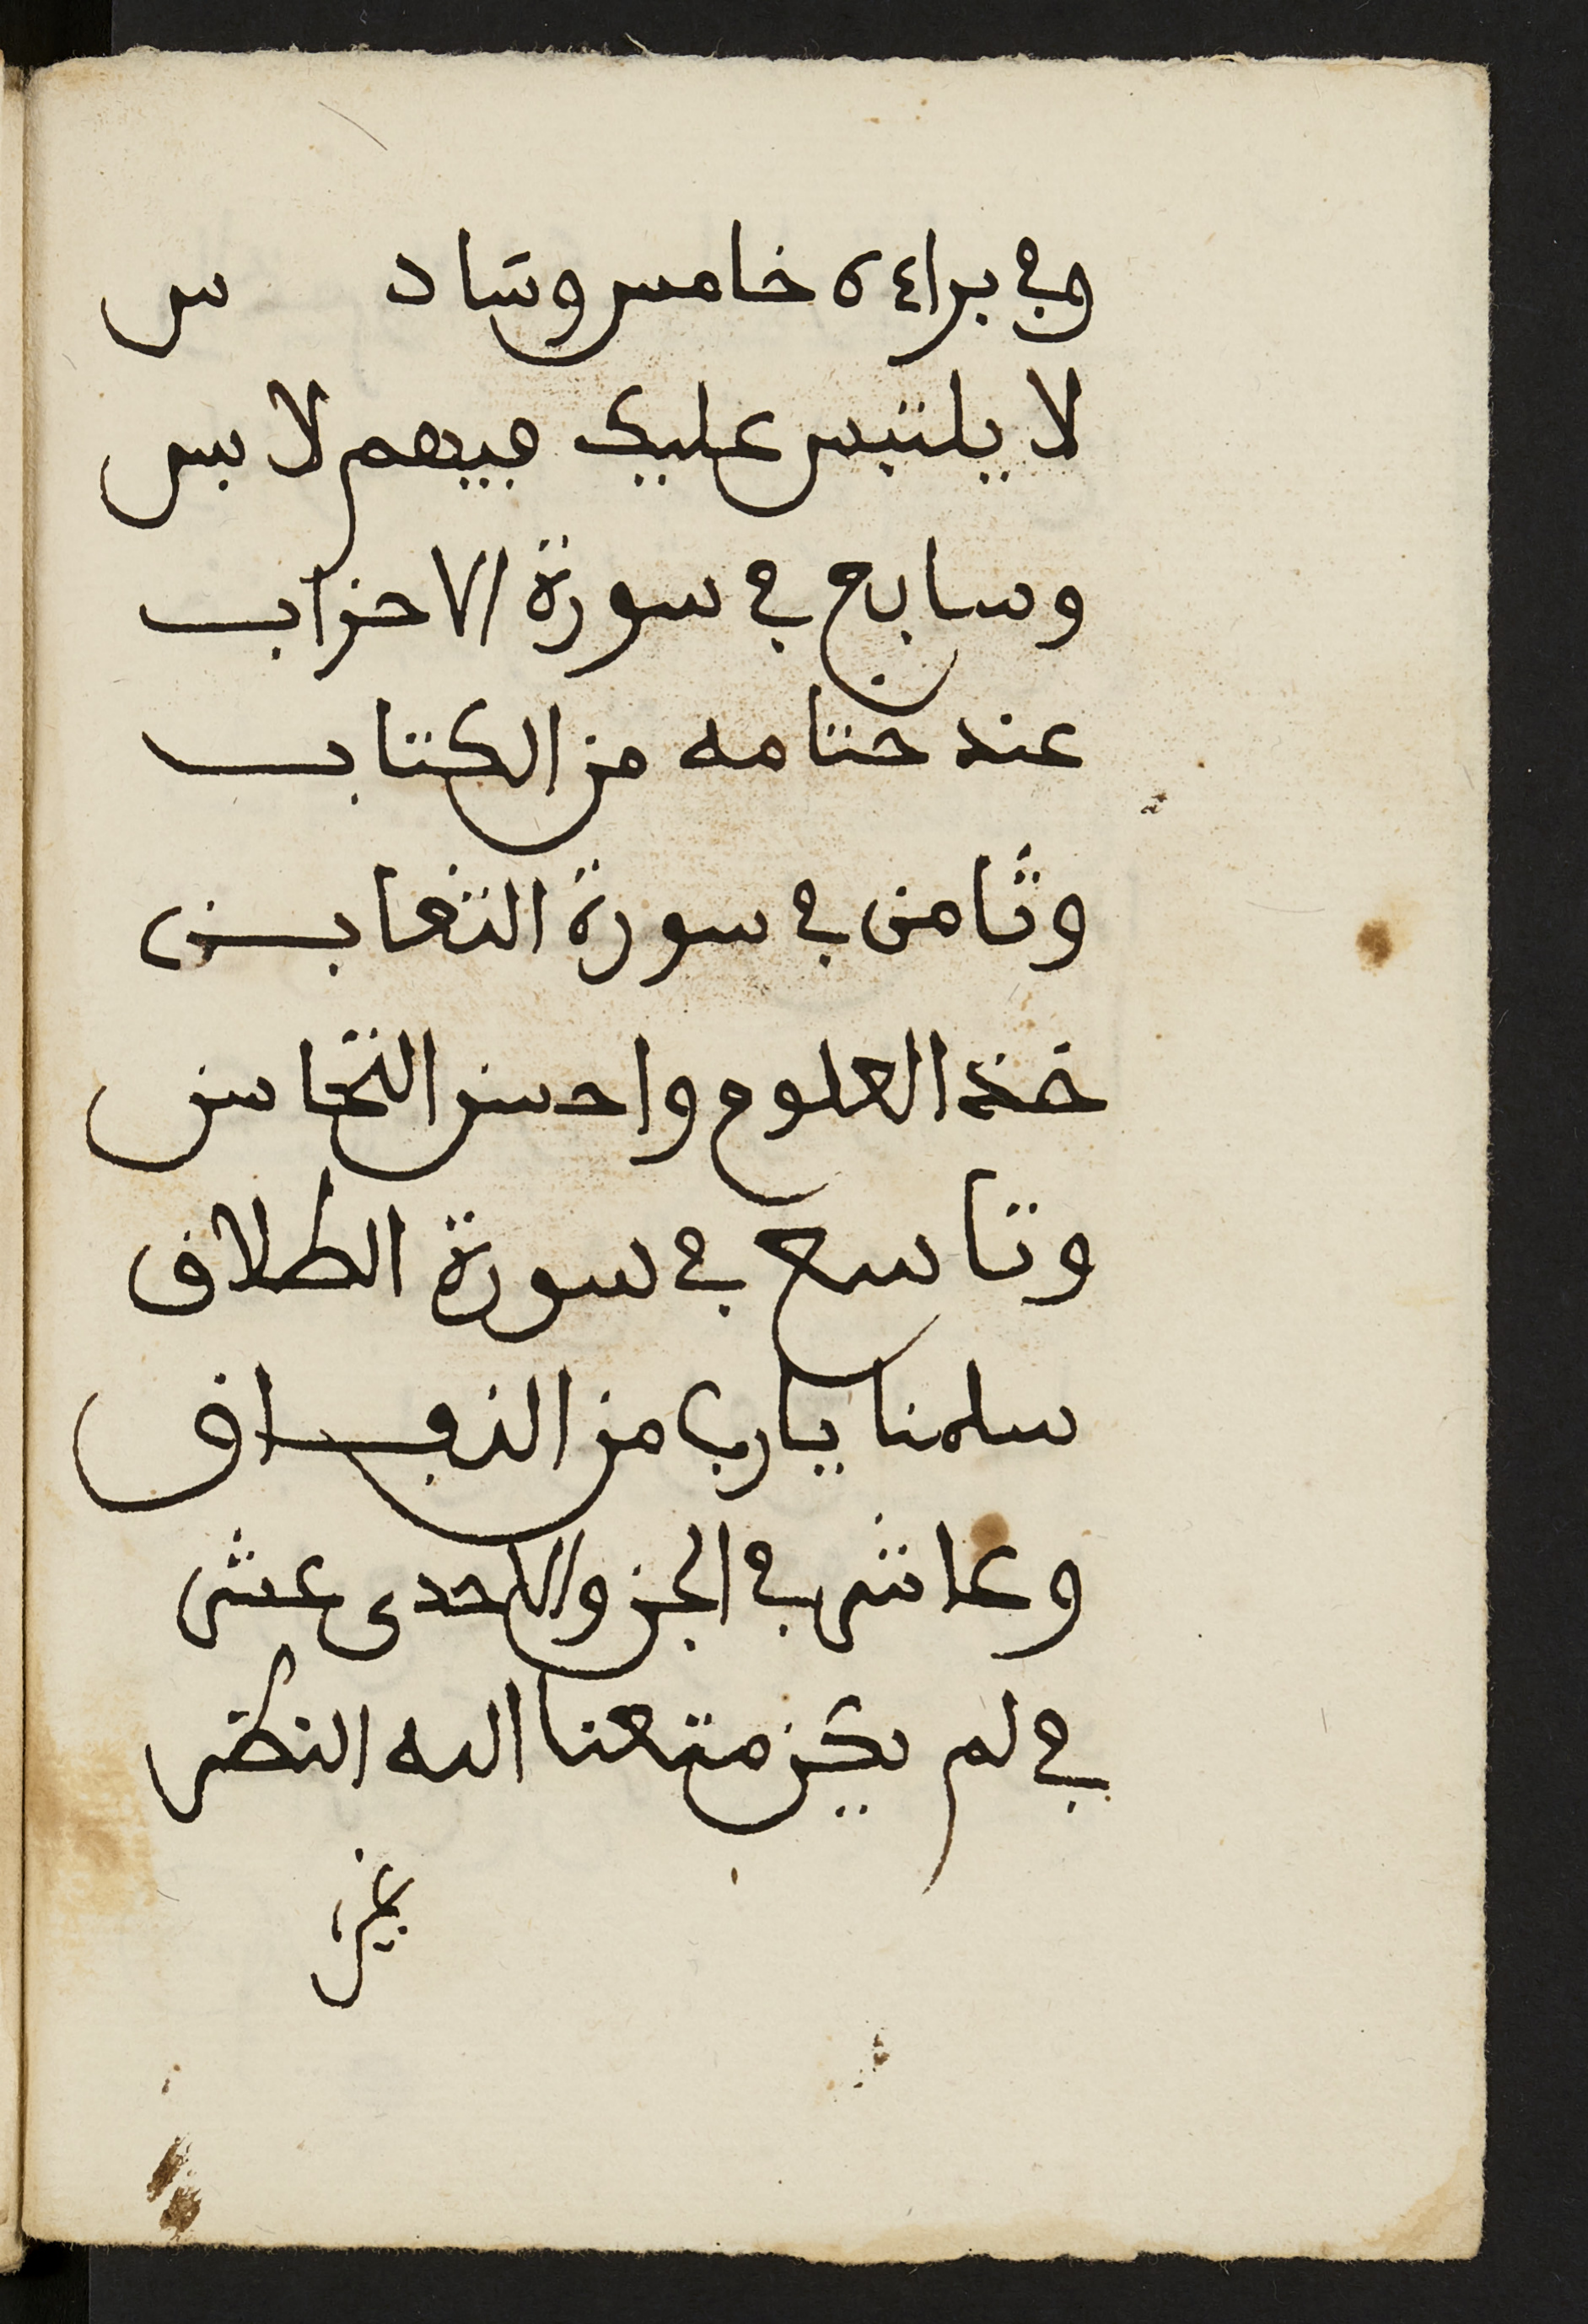 وفي براءة خامس وساد س
لا يلتبس عليك فيهم لابس
وسابع في سورة الاحزاب
عند ختامه من الكتاب
وثامن في سورة التغابن
خذ العلوم واحسن التحاسن
وتاسع في سورة الطلاق
سلمنا يارب من النفاق
وعاشر في الجزو الاحدى عشر
في لم يكن متعنا الله النظر